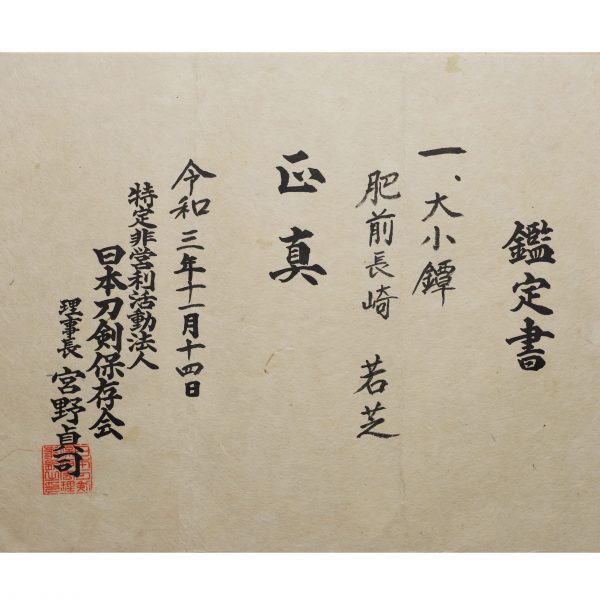 鑑定書
一、大小鐔
肥前長崎 若芝
正真
令和三年十一月十四日
特定非営利活動法人
日本刀剣保存会
理事長 宮野貞司